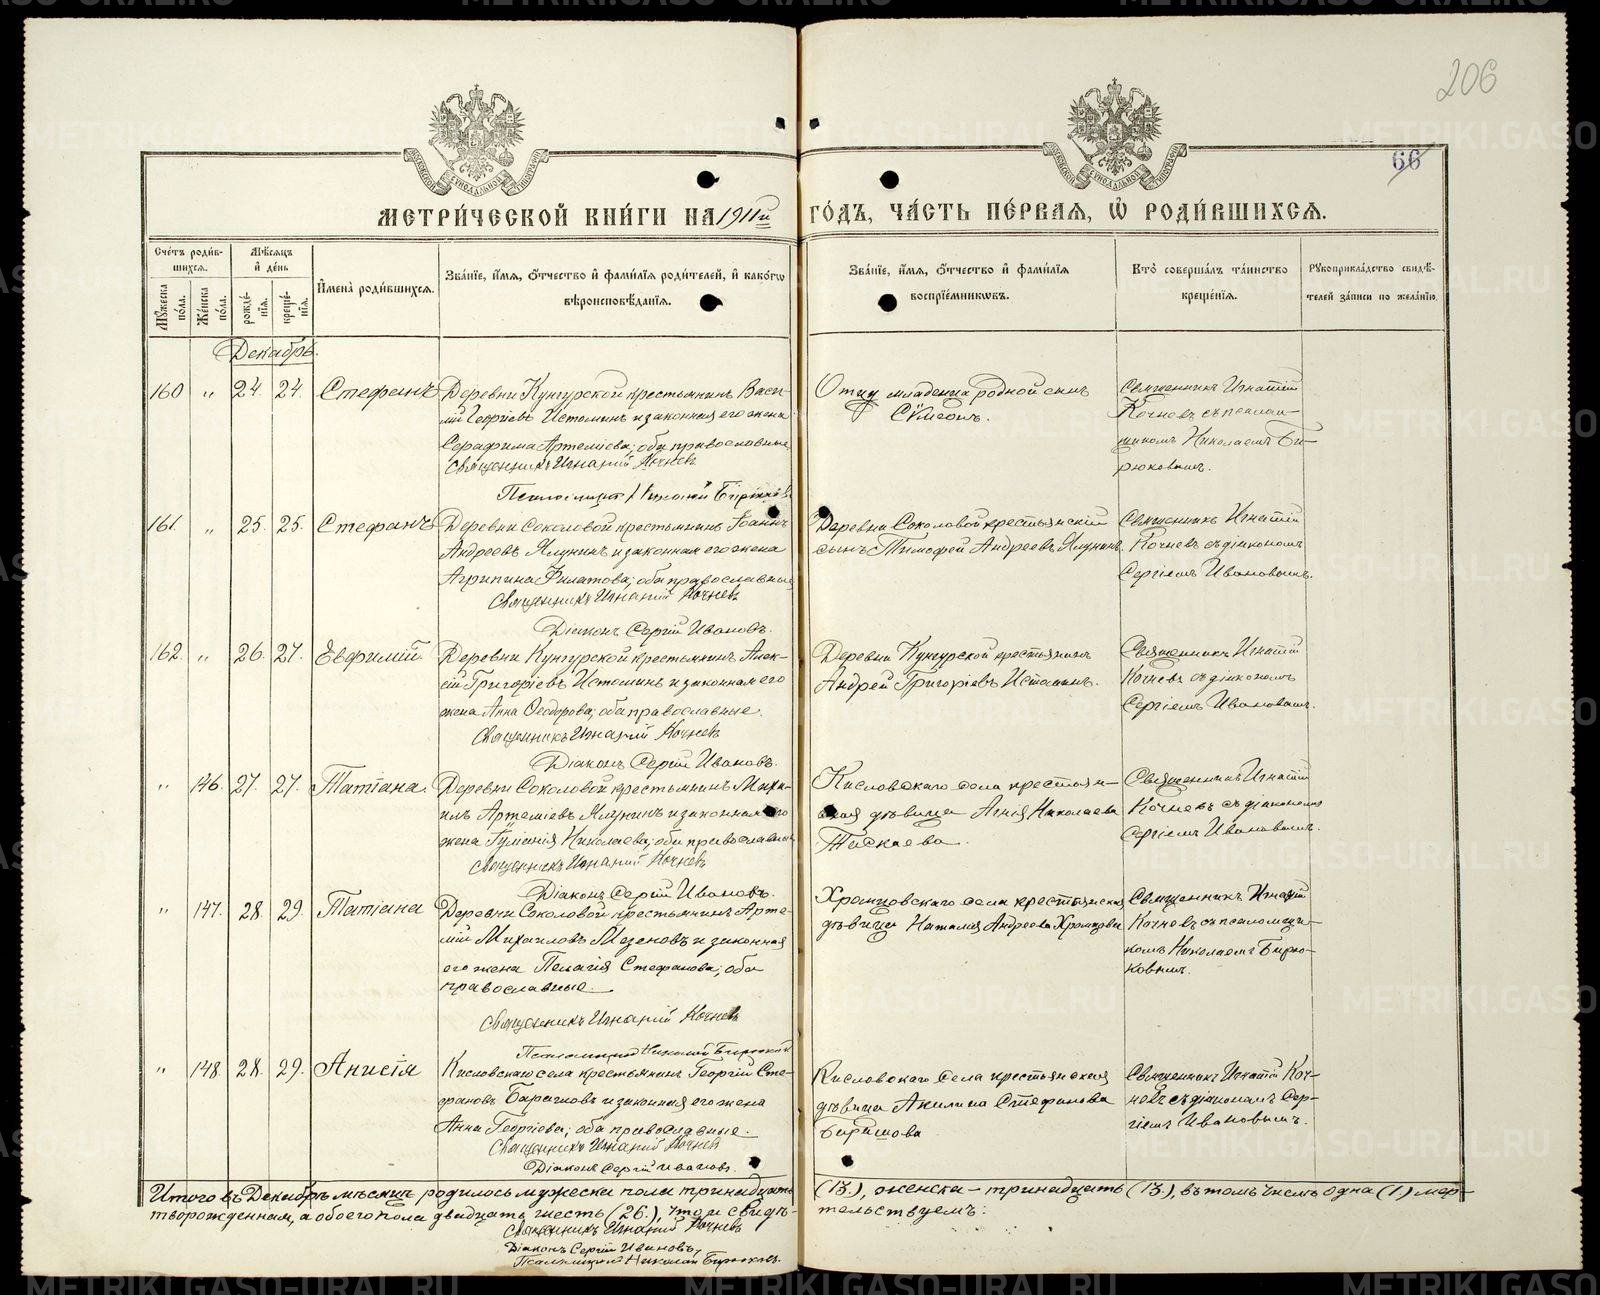 206
66
МЕТРИ́ЧЕСКОЙ КНИ́ГИ НА 1911й ГО́ДЪ, ЧА́СТЬ ПЕ́РВАЯ, Ѡ҆ РОДИ́ВШИХСЯ.
Сче́тъ роди́в-
шихся.
Мѣ́сяцъ
и҆ де́нь
Му́жеска
по́ла.
Же́нска
по́ла.
рожде́-
нїя.
креще́-
нїя.
И҆мена̀ роди́вшихся.
Зва́нїе, и҆́мя, ѻ҆́тчество и҆ фами́лїя роди́телей, и҆ како́гѡ
вѣроисповѣ́данїя.
Зва́нїе, и҆́мя, ѻ҆́тчество и҆ фами́лїя
воспрїе́мникѡвъ.
Кто̀ соверша́лъ та́инство
креще́нїя.
Рукоприкла́дство свидѣ́-
телей за́писи по жела́нїю.
Декабрь.
160 " 24. 24. Стефанъ
Деревни Кунгурской крестьянинъ Васи-
лій Георгіевъ Истоминъ и законная его жена
Серафима Артеміева; оба православные
Священникъ Игнатій Кочневъ
Псаломщикъ Николай Бирюковъ
Отцу младенца родной сынъ
Симеонъ.
Священникъ Игнатій
Кочневъ съ псалом-
щикомъ Николаемъ Би-
рюковымъ.
161. " 25. 25. Стефанъ
Деревни Соколовой крестьянинъ Іоаннъ
Андреевъ Ялунинъ и законная его жена
Агрипина Филатова; оба православные
Священникъ Игнатій Кочневъ
Діаконъ Сергій Ивановъ.
Деревни Соколовой крестьянскій
сынъ Тимофей Андреевъ Ялунинъ.
Священникъ Игнатій
Кочневъ съ діакономъ
Сергіемъ Ивановымъ.
162. " 26. 27. Евфимій.
Деревни Кунгурской крестьянинъ Алек-
сій Григоріевъ Истоминъ и законная его
жена Анна Ѳеодорова; оба православные.
Священникъ Игнатій Кочневъ
Діаконъ Сергій Ивановъ.
Деревни Кунгурской крестьянинъ
Андрей Григоріевъ Истоминъ.
Священникъ Игнатій
Кочневъ съ діакономъ
Сергіемъ Ивановымъ.
" 146. 27. 27. Татіана.
Деревни Соколовой крестьянинъ Миха-
илъ Артеміевъ Ялунинъ и законная его
жена Николаева; оба православные
Священникъ Игнатій Кочневъ
Діаконъ Сергій Ивановъ.
Кисловскаго села крестьян-
ская дѣвица Агнія Николаева
Тискаева.
Священникъ Игнатій
Кочневъ съ діакономъ
Сергіемъ Ивановымъ.
" 147. 28. 29. Татіана
Деревни Соколовой крестьянинъ Арте-
мій Михаиловъ Мезеновъ и законная
его жена Пелагія Стефанова; оба
православные.
Священникъ Игнатій Кочневъ
Псаломщикъ Николай Бирюковъ
Хромцовскаго села крестьянская
дѣвица Наталия Андреева Хромцова
Священникъ Игнатій
Кочневъ съ псаломщи-
комъ Николаемъ Бирю-
ковымъ.
" 148. 28. 29. Анисія
Кисловскаго села крестьянинъ Георгій Сте-
фановъ и законная его жена
Анна Георгіева; оба православные.
Священникъ Игнатій Кочневъ
Діаконъ Сергій Ивановъ.
Кисловскаго села крестьянская
дѣвица Акилина Стефанова
Священникъ Игнатій Коч-
невъ съ діакономъ Сер-
гіемъ Ивановымъ.
Итого въ Декабрѣ мѣсяцѣ родилось мужеска пола тринадцать (13.), женска – тринадцать (13.), въ томъ числѣ одна (1) мер-
творожденная, а обоего пола двадцать шесть (26.), что и свидѣ- тельствуемъ:
Священникъ Игнатій Кочневъ
Діаконъ Сергій Ивановъ,
Псаломщикъ Николай Бирюковъ.